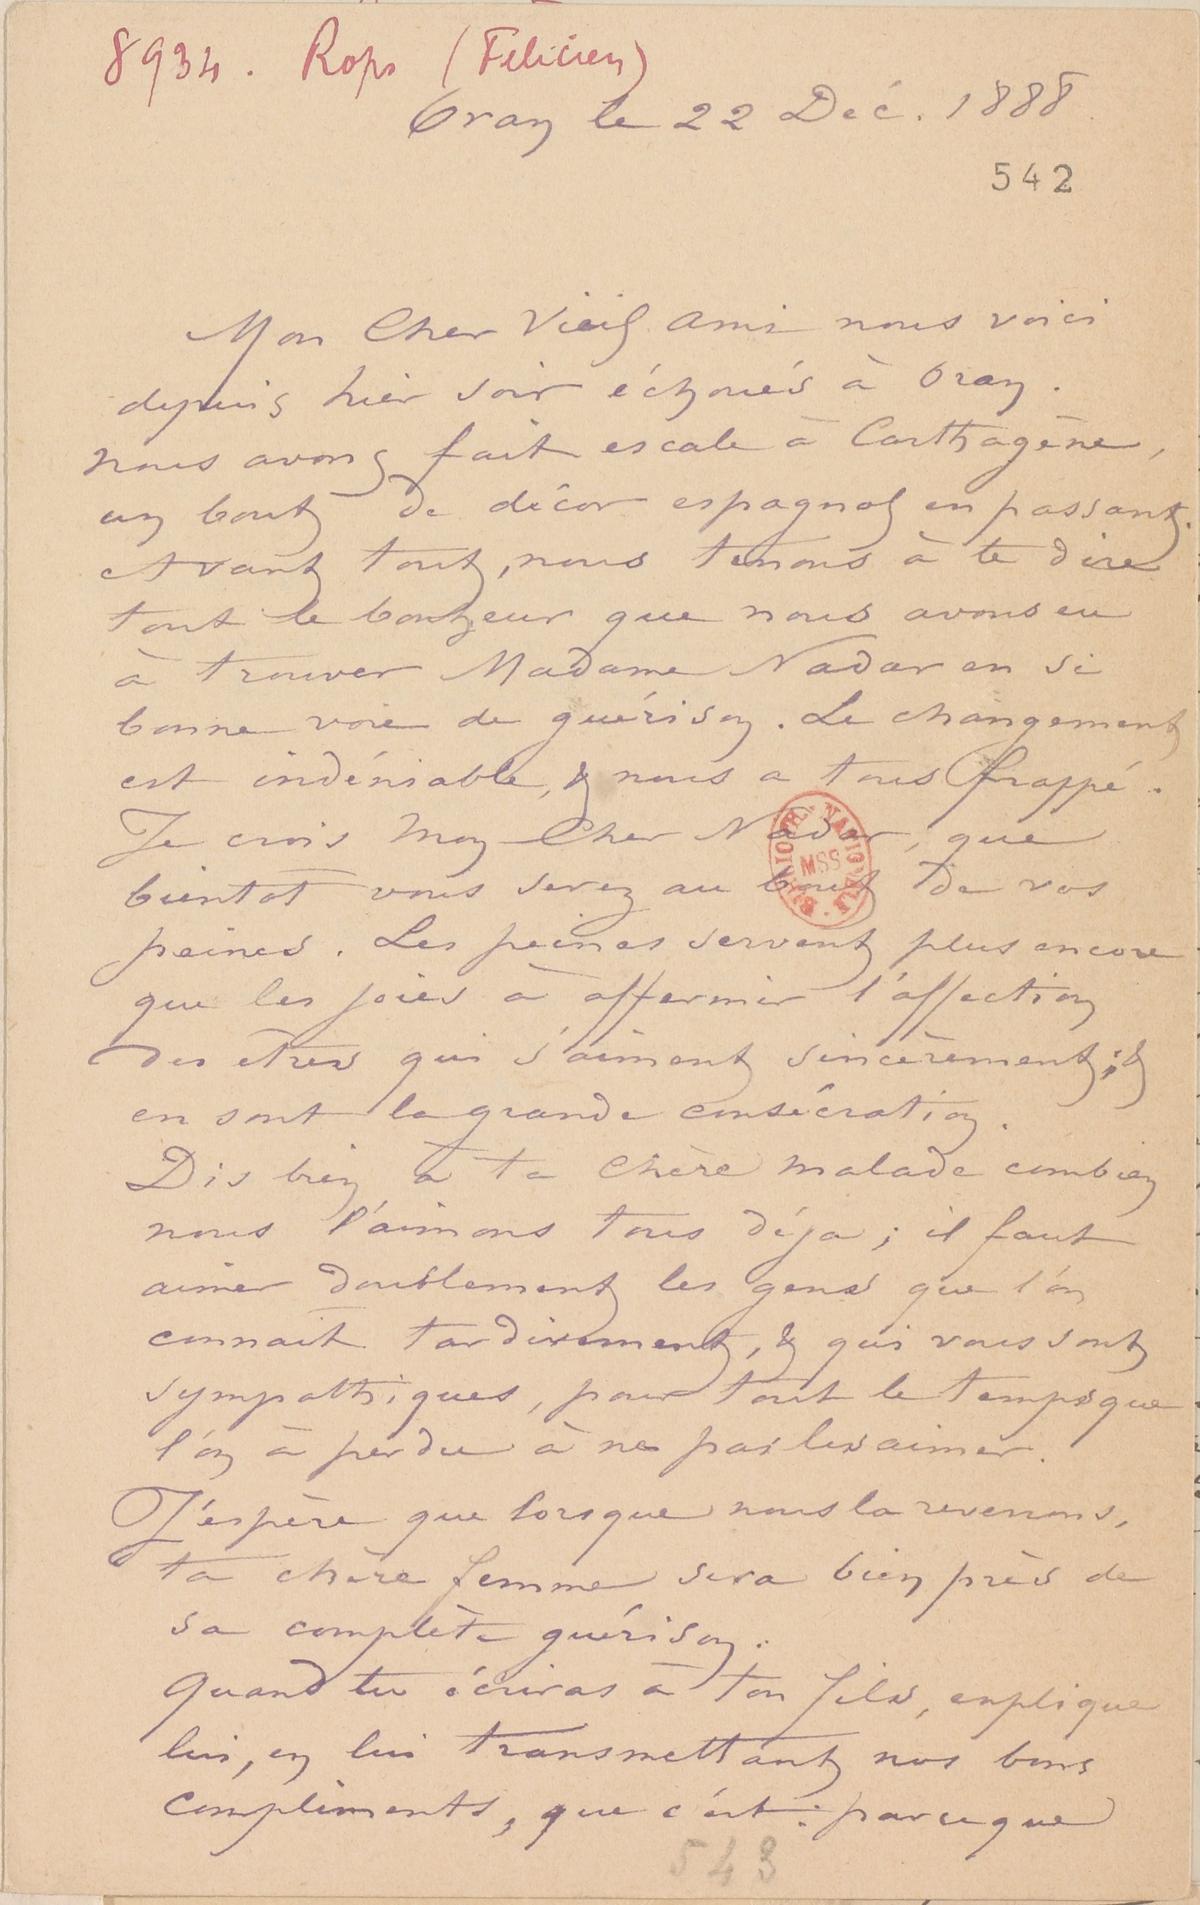 8934. Rops (Félicien)
Oran le 22 Déc. 1888
542
Mon Cher Vieil ami nous voici
depuis hier soir échoués à Oran.
nous avons fait escale à Carthagène,
un bout de décor espagnol en passant.
Avant tout, nous tenons à te dire
tout le bonheur que nous avons eu
à trouver Madame Nadar en si
bonne voie de guérison. Le changement
est indéniable, & nous a tous frappé.
Je crois mon Cher Nadar, que
bientot vous serez au bout de vos
peines. Les peines servent plus encore
que les joies à affermir l'affection
des etres qui s'aiment sincèrement; &
en sont la grande consécration.
Dis bien à ta chère malade combien
nous l'aimons tous déja; il faut
aimer doublement les gens que l'on
connait tardivement, & qui vous sont
sympathiques, pour tout le temps que
l'on à perdu à ne pas les aimer.
J'espère que lorsque nous la reverrons,
ta chère femme sera bien près de
sa complète guérison.
Quand tu écriras à ton fils, explique
lui, en lui transmettant nos bons
compliments, que c'est: parceque
543
BIBLIOTH. NATIONALE
MSS